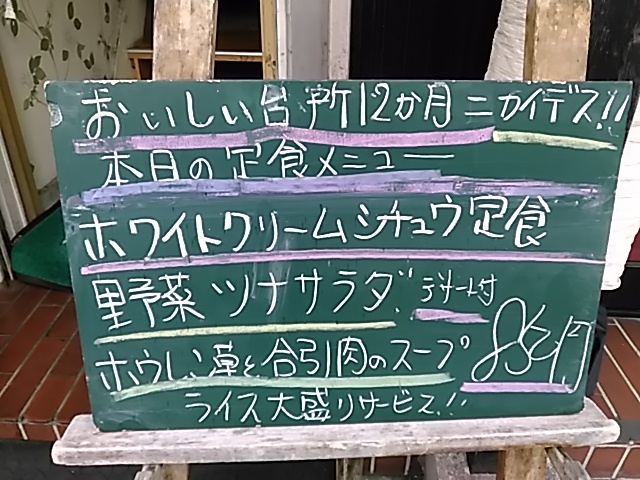 おいしい台所12か月ニカイデス!!
本日の定食メニュー
ホワイトクリームシチュウ定食
野菜ツナサラダ デザート付
ホウレン草と合引肉のスープ 850円
ライス大盛りサービス!!